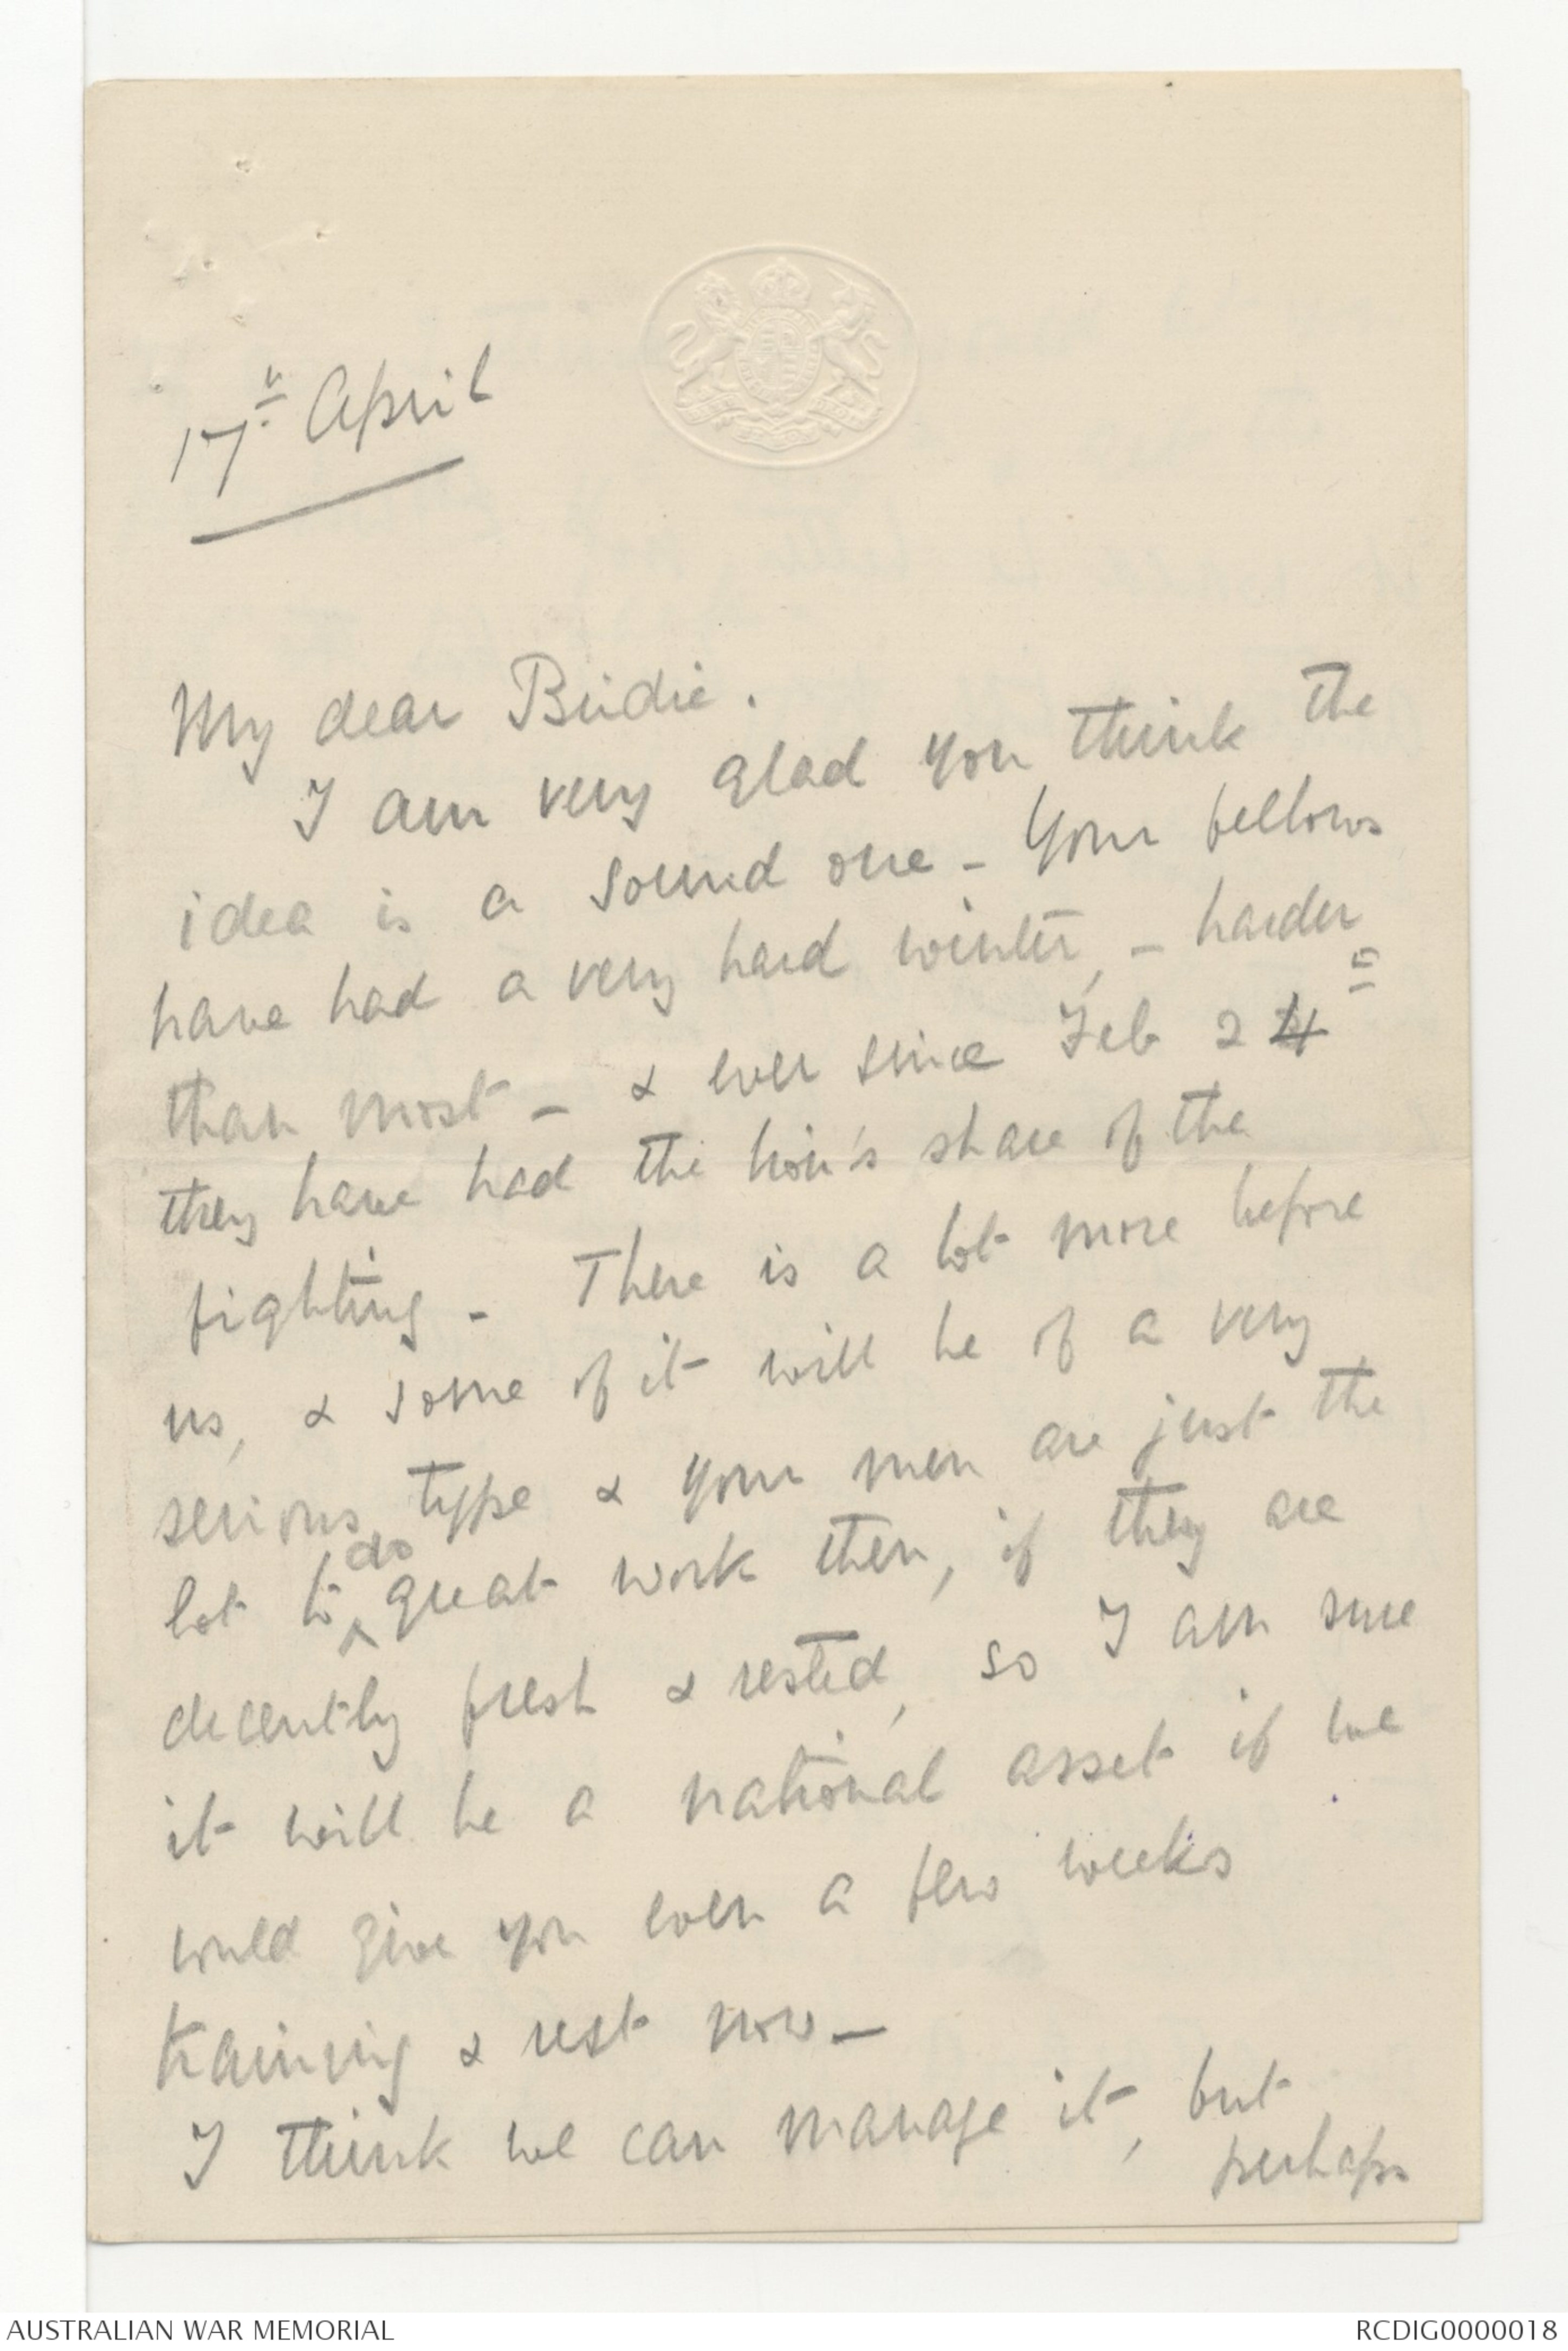 17th April
My dear Birdie.
I am very glad you think the
idea is a sound one - Your fellows
have had a very hard winter, - harder
than most - & ever since Feb 24th
they have had the lion's share of the
fighting - There is a lot more before
us, & some of it will be of a very
serious type & your men are just the
lot to do great work then, if they are
decently fresh & rested, so I am sure
it will be a national asset if we
could give you even a few weeks
training & rest now -
I think we can manage it, but
perhaps
AUSTRALIAN WAR MEMORIAL
RCDIG0000018